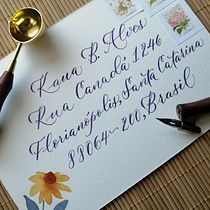 Kaua B. Alves
Rua Canadá 1246
Florianópolis, Santa Catarina
88064-200, Brasil